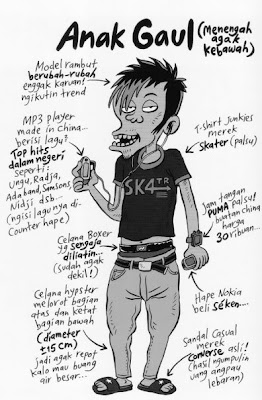 Anak Gaul (Menengah
agak
kebawah)
Model rambut
berubah-rubah
enggak karuan!
ngikutin trend
MP3 player
made in China...
berisi lagu2
Top hits
dalam negeri
seperti:
Ungu, Radja,
Ada band, Samsons,
Nidji dsb...
(ngisi lagu nya di-
Counter hape)
T-shirt junkies
merek
Skater (palsu)
SK4TR
Jam tangan
PUMA palsu!
buatan China
harga
30 ribuan...
Celana Boxer
yg sengaja
diliatin...
(sudah agak
dekil!)
Celana hypster
melorot bagian
atas dan ketat
bagian bawah
(diameter
±15 cm)
jadi agak repot
kalo mau buang
air besar...
Hape Nokia
beli séken...
Sandal Casual
merek
converse asli!
(hasil ngumpulin
uang angpau
lebaran)